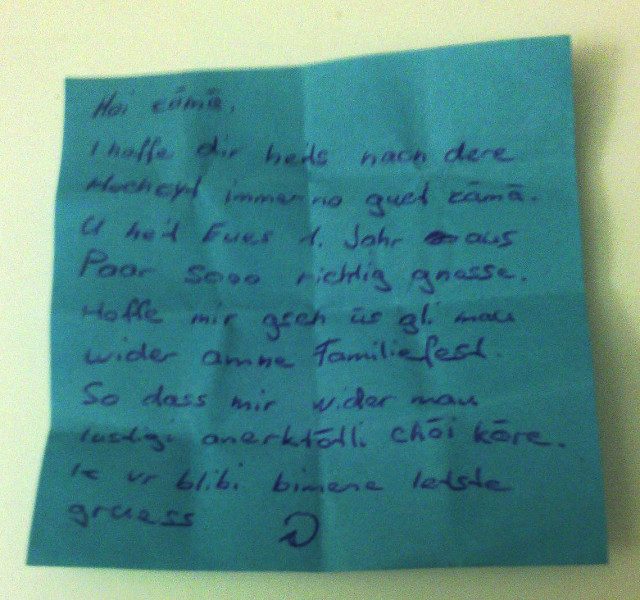 Hoi zämä,
I hoffe dir heits nach dere
Hochzyt immer no guet zämä.
U heit Eues 1. Johr aus
Paar sooo richtig gnosse.
Hoffe mir gseh üs gli mau
wider amne Familiefest.
So dass mir wider mau
lustigi anerktötli chöi köre.
vr blibi bimene letste
gruess